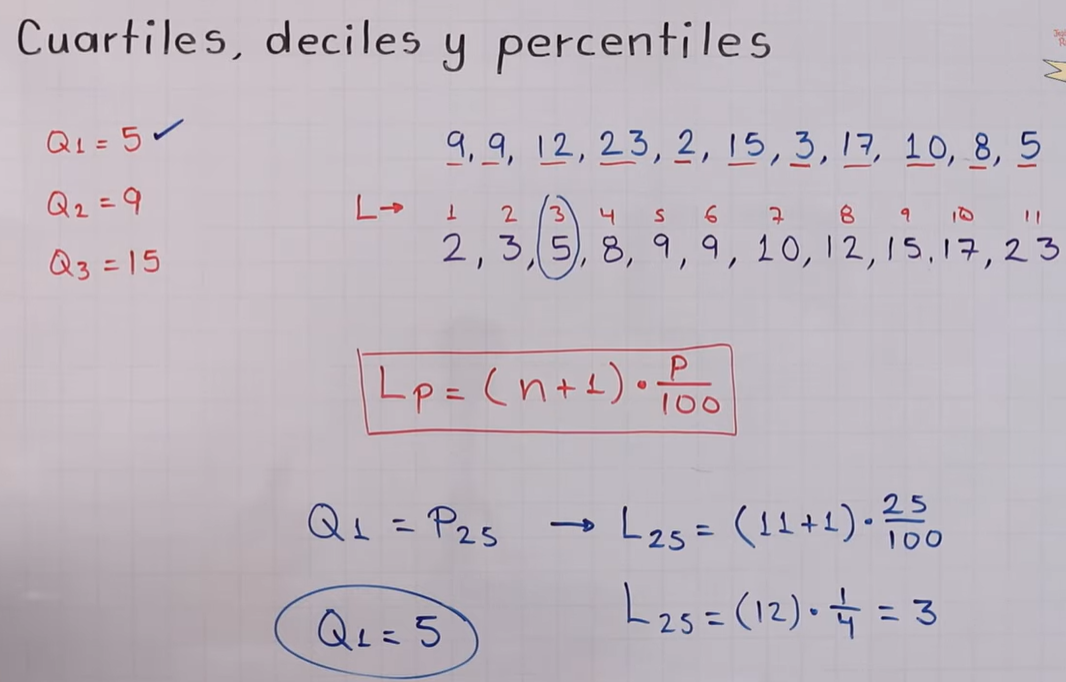 Cuartiles, deciles y percentiles
Q1 = 5 ✓
9, 9, 12, 23, 2, 15, 3, 17, 10, 8, 5
Q2 = 9
L → 1 2 3 4 5 6 7 8 9 10 11
2, 3, 5, 8, 9, 9, 10, 12, 15, 17, 23
Q3 = 15
Lp = (n+1) · P/100
Q1 = P25 → L25 = (11+1) · 25/100
L25 = (12) · 1/4 = 3
Q1 = 5